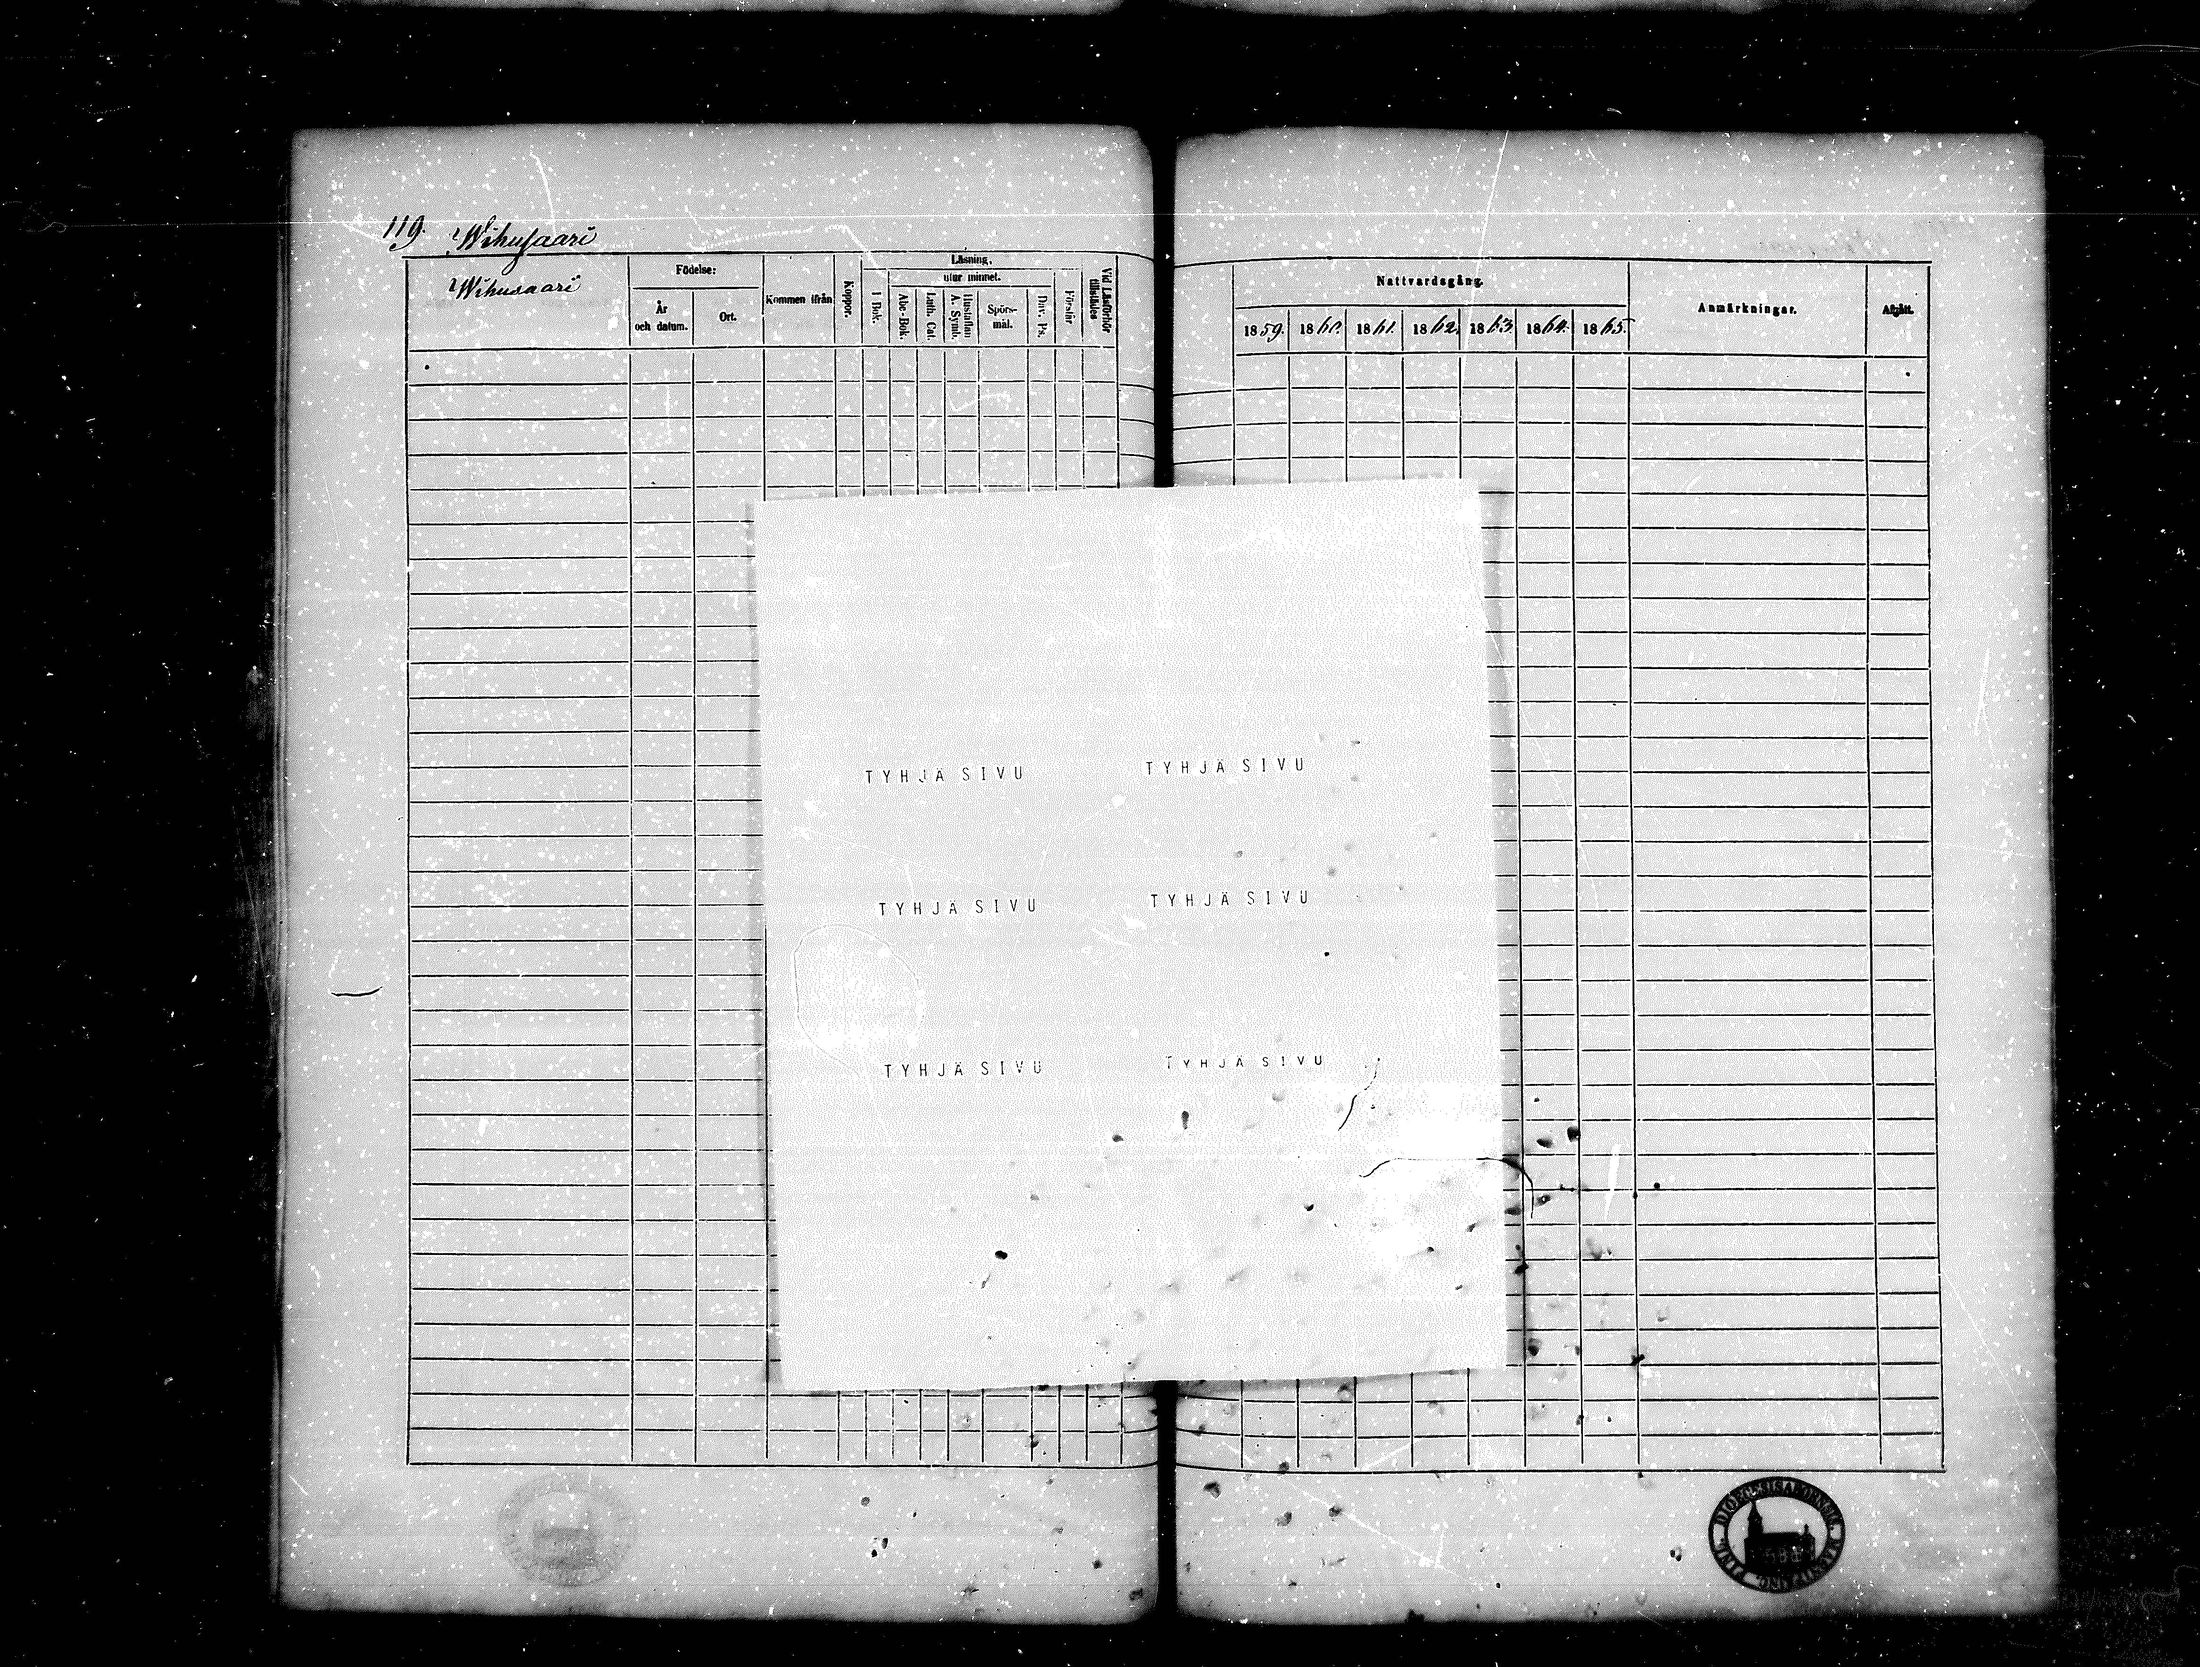 119.
Wihusaari
Wihusaari
Födelse:
År
och datum.
Ort.
Kommen ifrån
Koppor.
Läsning,
utur minnet.
I Bok.
Abc-Bok.
Luth. Cat.
Hustaflan
A. Symb.
Spörs-
mål.
Dav. Ps.
Förstår
Vid Läsförhör
tillstädes
Nattvardsgång.
1859. 1860. 1861. 1862. 1863. 1864. 1865.
Anmärkningar.
Afgått.
TYHJÄ SIVU TYHJÄ SIVU
TYHJÄ SIVU TYHJÄ SIVU
TYHJÄ SIVU TYHJÄ SIVU